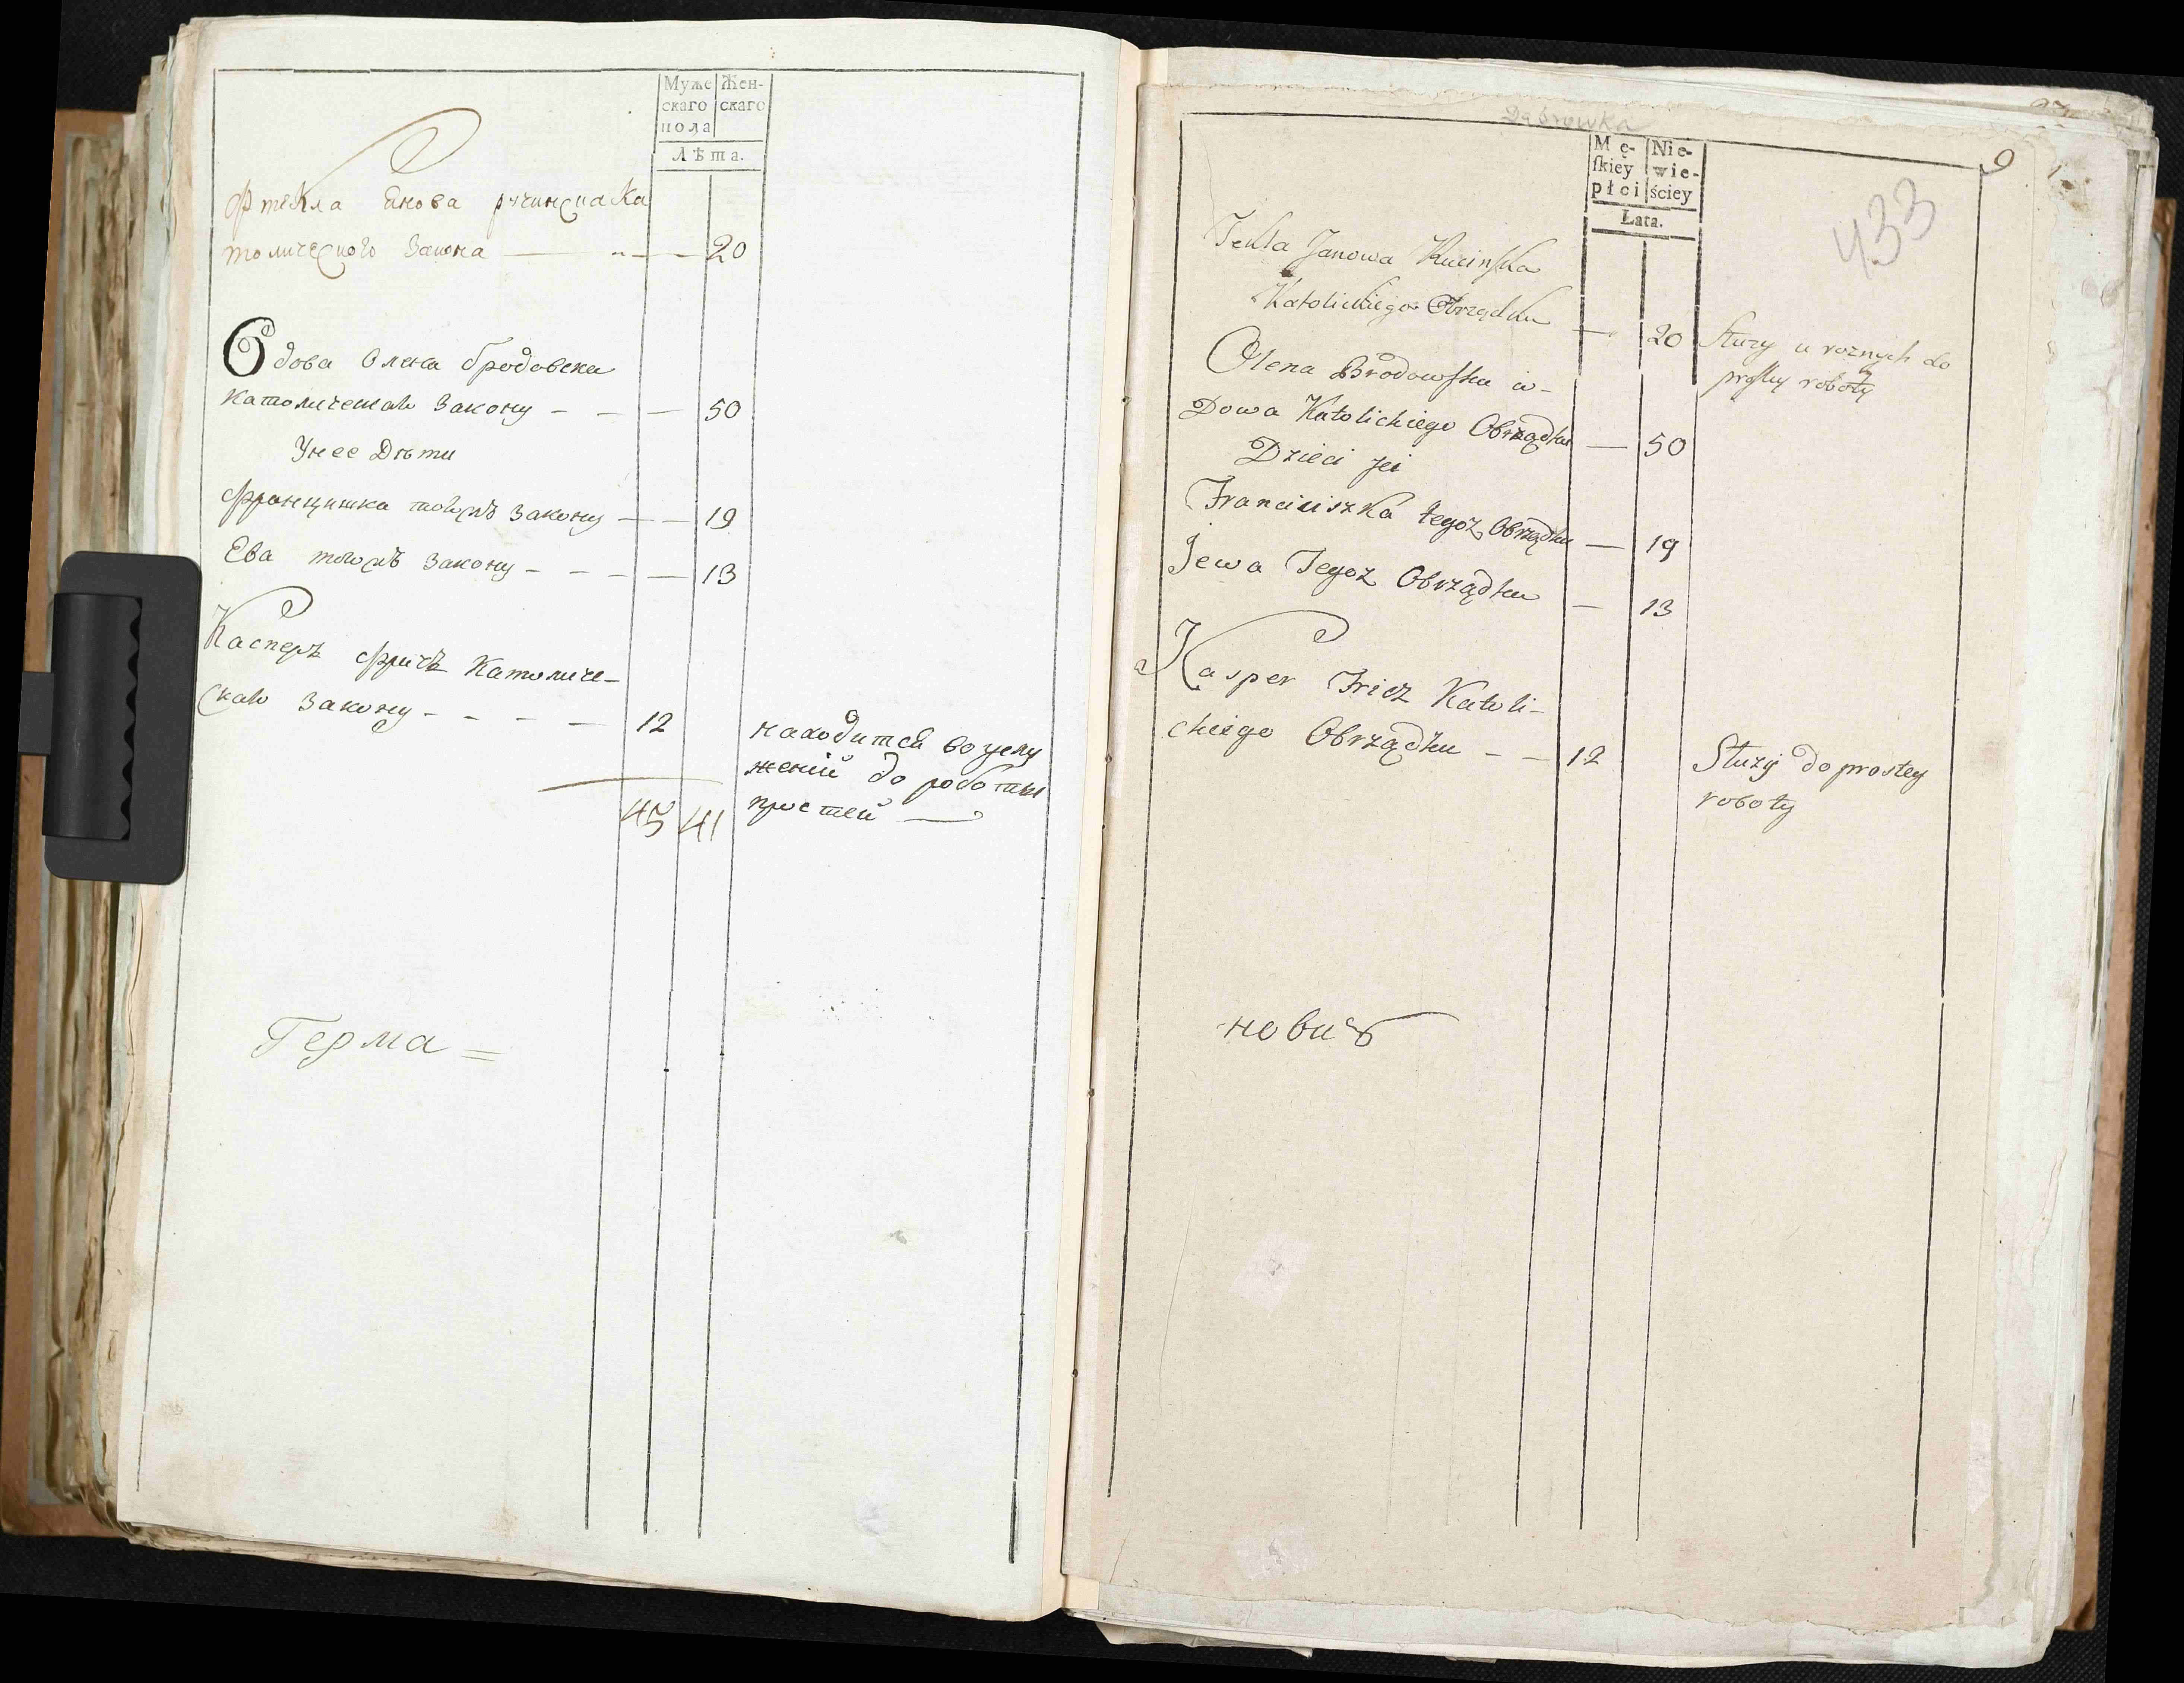 Муже Жен-
скаго скаго
пола
Лѣта.
Фтекла Янова ручинска Ка
толического Закона — 20
Вдова Олена бродовска
Католическаго Закону — 50
Унее Дѣти
Францишка тогожъ Закону — 19
Ева тогожъ Закону — 13
Касперъ Фричъ Католиче-
скаго Закону — 12
находится во услу
женіи до роботы
простей
45 41
Герма=
Dąbrowka
9
433
Mę- Nie-
ſkiey wie-
płci ściey
Łata.
Tekla Janowa Rucinſka
Katolickiego Obrządku — 20
Służy u roznych do
prostey roboty
Olena Brodowſka w-
Dowa Katolickiego Obrządku — 50
Dzieci jei
Franciiszka tegoz Obrządku — 19
Jewa Tegoz Obrządku — 13
Kasper Fricz Katoli-
ckiego Obrządku — 12
Służy do prostey
roboty
новичъ